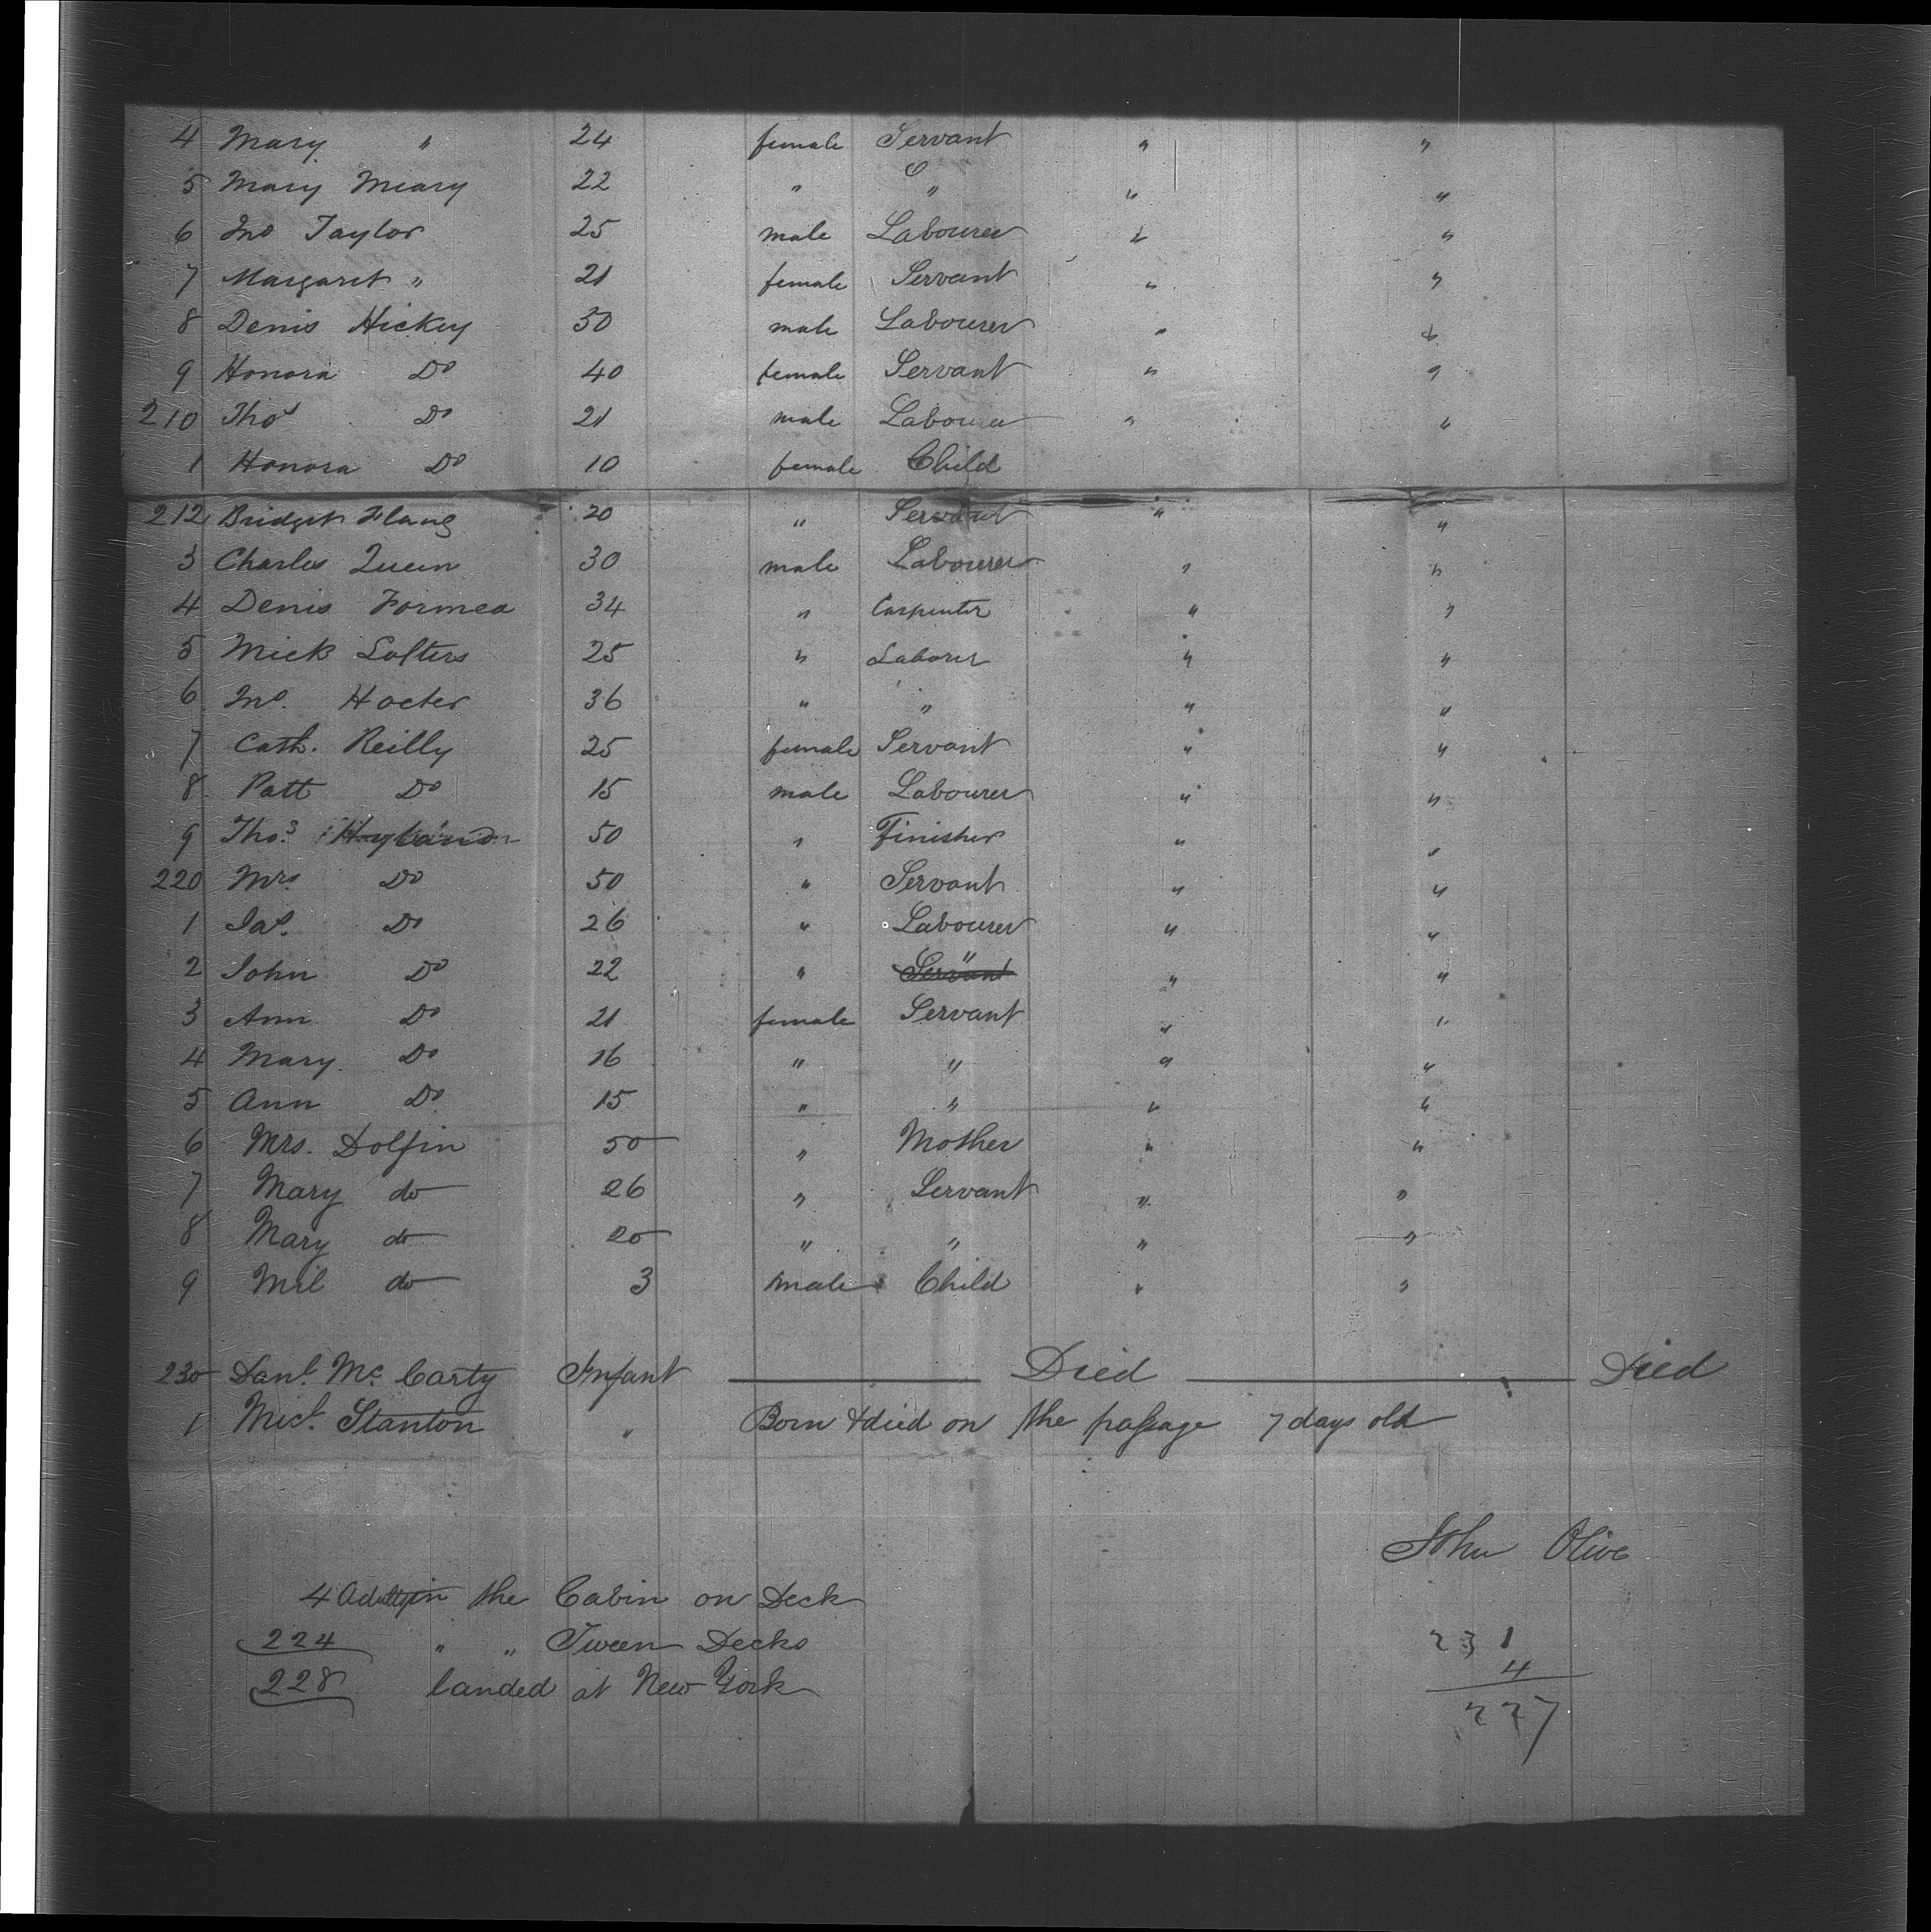 4 Mary " 24 female Servant " "
5 Mary Meary 22 " " " "
6 Jno Taylor 25 male Labourer " "
7 Margaret " 21 female Servant " "
8 Denis Hickey 30 male Labourer " "
9 Honora Do 40 female Servant " "
210 Thos Do 21 male Labourer " "
1 Honora Do 10 female Child
212 Bridget 20 " Servant " "
3 Charles Queen 30 male Labourer " "
4 Denis Formea 34 " Carpenter " "
5 Mick Lofters 25 " Laborer " "
6 Jno. Hocter 36 " " " "
7 Cath. Reilly 25 female Servant " "
8 Patt Do 15 male Labourer " "
9 Thos. Hyland 50 " Finisher " "
220 Mrs. Do 50 " Servant " "
1 Jas. Do 26 " Labourer " "
2 John Do 22 " Servant " " "
3 Ann Do 21 female Servant " "
4 Mary Do 16 " " " "
5 Ann Do 15 " " " "
6 Mrs. Dolfin 50 " Mother " "
7 Mary do 26 " Servant " "
8 Mary do 20 " " " "
9 do 3 male Child " "
230 Danl. Mc Carty Infant Died Died
1 Micl. Stanton " Born & died on the passage 7 days old
John Olive
4 Adults in the Cabin on Deck
224 " " Tween Decks 231
4
228 landed at New York
227